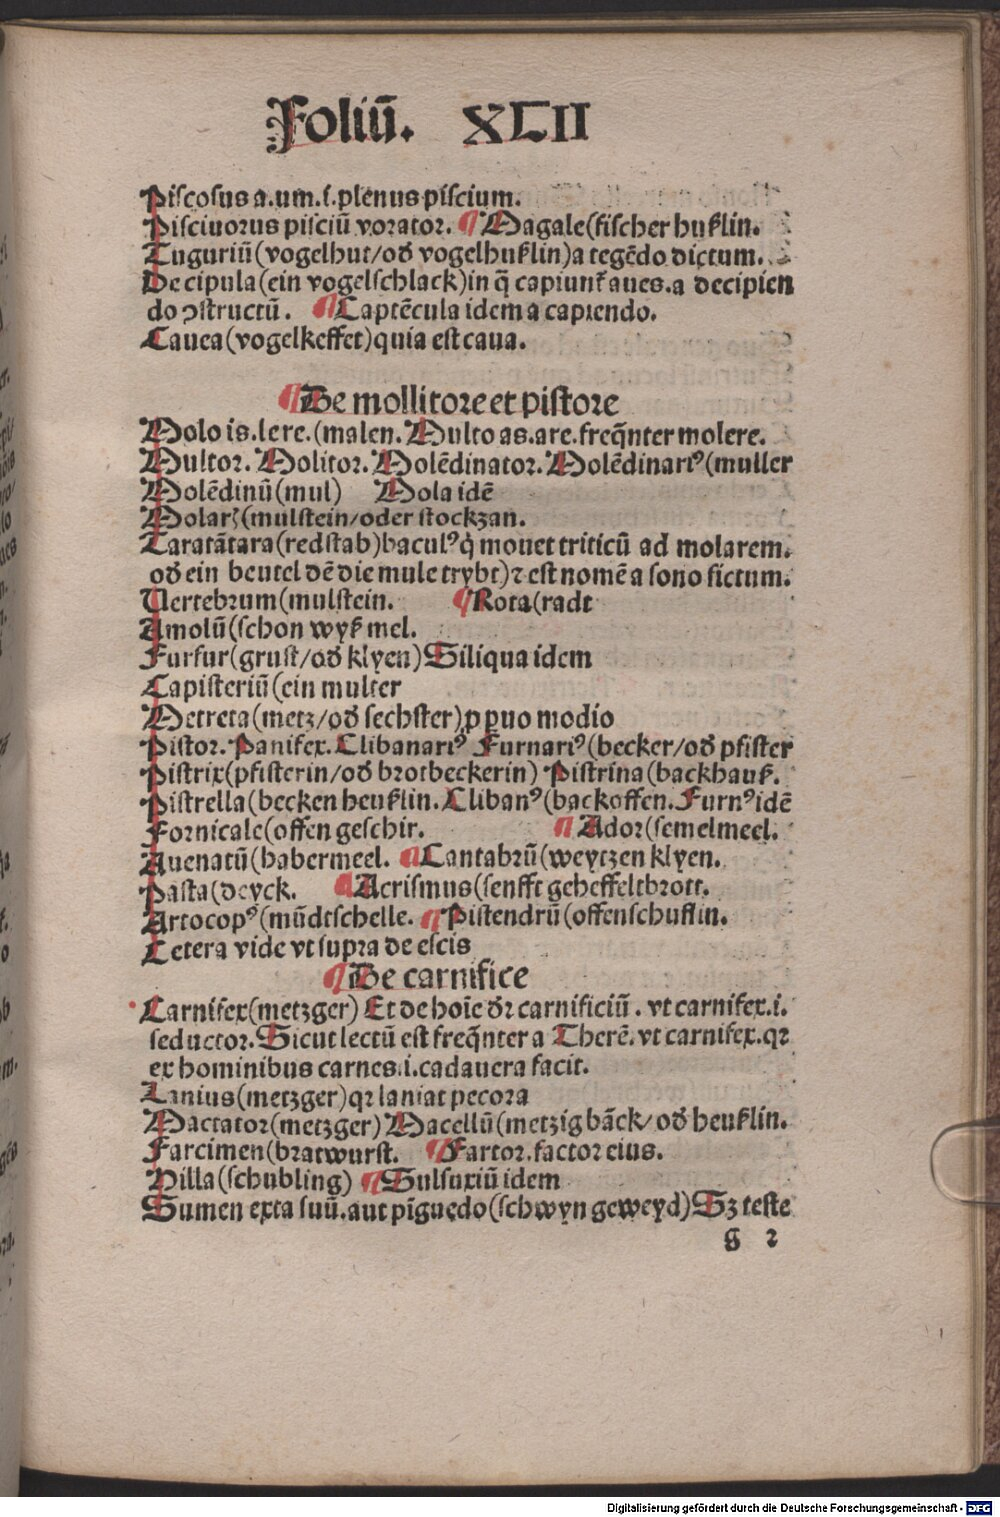 Foliū. XLII
Piscosus a.um.i.plenus piscium.
Pisciuorus pisciū vorator. ¶ Magale(fischer hußlin.
Tuguriū(vogelhut/oď vogelhußlin)a tegēdo dictum.
Decipula(ein vogelschlack)in q̄ capiunť aues.a decipien
do ↄstructū. ¶ Captēcula idem a capiendo.
Cauea(vogelkeffet)quia est caua.
¶ De mollitore et pistore
Molo is.lere.(malen. Multo as.are.freq̄nter molere.
Multor. Molitor. Molēdinator. Molēdinariꝰ(muller
Molēdinū(mul) Mola idē
Molarꝭ(mulstein/oder stockzan.
Taratātara(redstab)baculꝰ q̇ mouet triticū ad molarem.
oď ein beutel dē die mule trybt)⁊ est nomē a sono fictum.
Uertebrum(mulstein. ¶ Rota(radt
Amolū(schon wyß mel.
Furfur(grust/oď klyen)Siliqua idem
Capisteriū(ein multer
Metreta(metz/oď sechster)ꝓ puo modio
Pistor. Panifex. Clibanariꝰ Furnariꝰ(becker/oď pfister
Pistrix(pfisterin/oď brotbeckerin) Pistrina(backhauß.
Pistrella(becken heußlin. Clibanꝰ(backoffen. Furnꝰ idē
Fornicale(offen geschir. ¶ Ador(semelmeel.
Auenatū(habermeel. ¶ Cantabrū(weytzen klyen.
Pasta(deyck. ¶ Acrismus(senfft geheffeltbrott.
Artocopꝰ(mūdtschelle. ¶ Pistendrū(offenschuflin.
Cetera vide vt supra de escis
¶ De carnifice
Carnifex(metzger) Et de hoīe dꝛ carnificiū. vt carnifex.i.
seductor. Sicut lectū est freq̄nter a Therē. vt carnifex.qꝛ
ex hominibus carnes.i.cadauera facit.
Lanius(metzger)qꝛ laniat pecora
Mactator(metzger) Macellū(metzig bāck/oď heußlin.
Farcimen(bratwurst. ¶ Fartor.factor eius.
Hilla(schubling) ¶ Sulsuxiū idem
Sumen exta suū.aut pīguedo(schwyn geweyd)Sꝫ teste
g 2
Digitalisierung gefördert durch die Deutsche Forschungsgemeinschaft - DFG